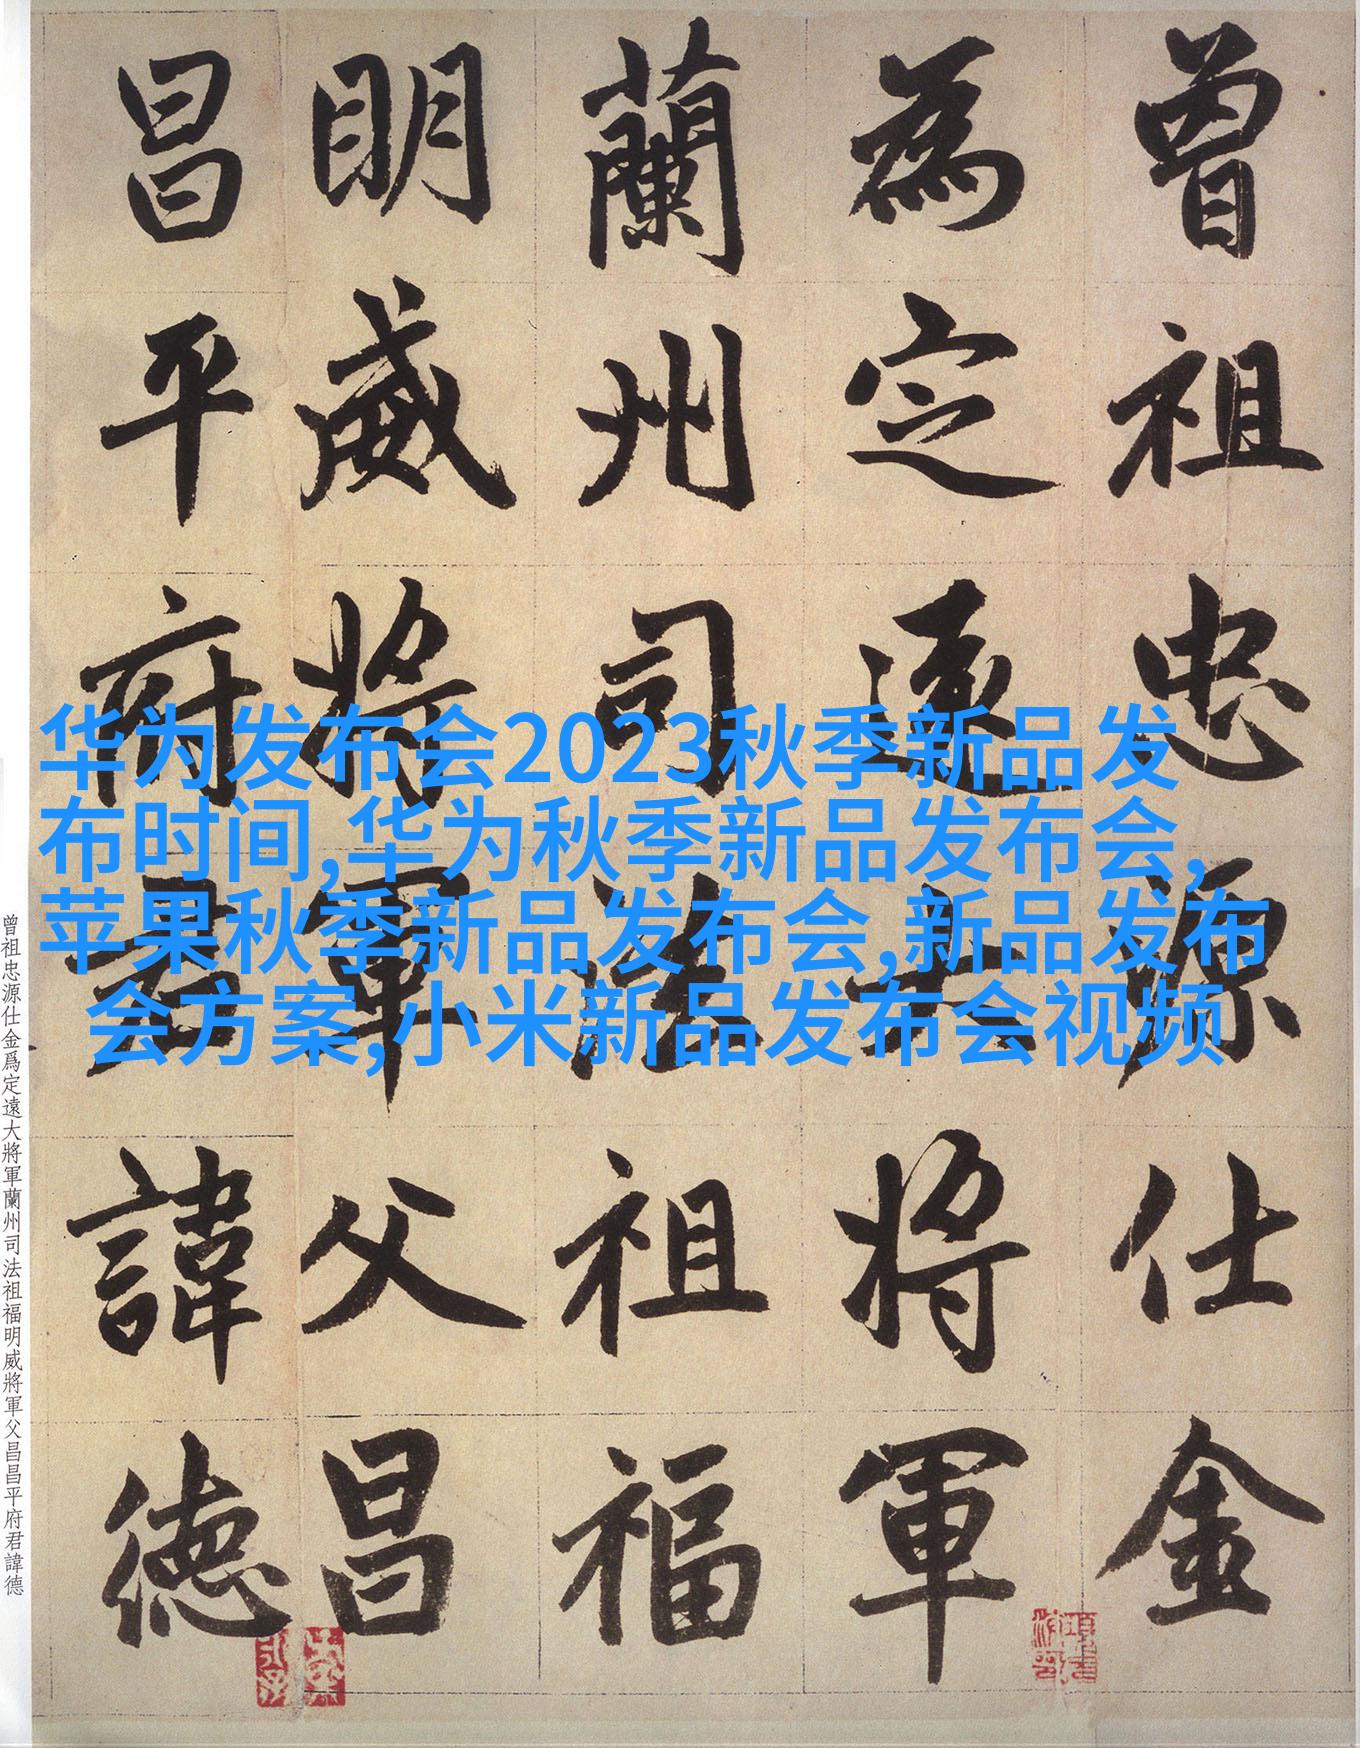 曾祖忠源仕金
為定遠大將軍
蘭州司法祖福
明威將軍父昌
昌平府君諱德
华为发布会2023秋季新品发
布时间,华为秋季新品发布会,
苹果秋季新品发布会,新品发布
会方案,小米新品发布会视频
曾祖忠源仕金爲定遠大將軍蘭州司法祖福明威將軍父昌昌平府君諱德